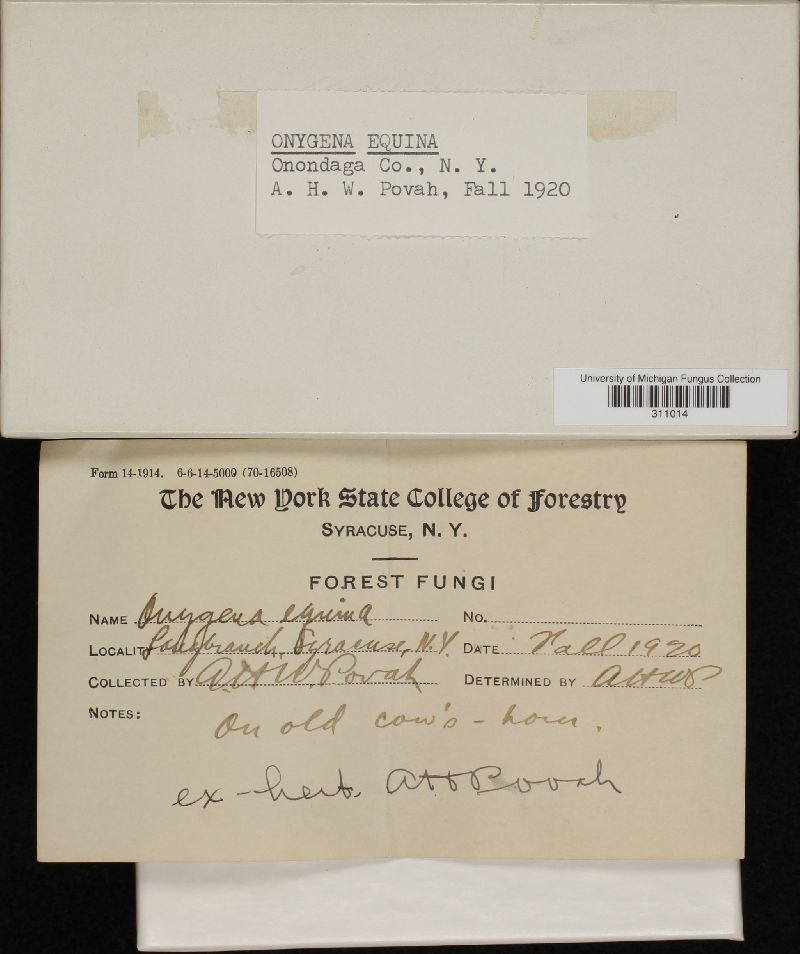 ONYGENA EQUINA
Onondaga Co., N. Y.
A. H. W. Povah, Fall 1920
University of Michigan Fungus Collection
311014
Form 14-1914. 6-6-14-5000 (70-16508)
The New York State College of Forestry
SYRACUSE, N. Y.
FOREST FUNGI
NAME Onygena equina No.
LOCALITY Longbranch, Syracuse, N.Y. DATE Fall 1920
COLLECTED BY A.H.W. Povah DETERMINED BY AHWP
NOTES:
On old cow's-horn.
ex-herb. AHW Povah